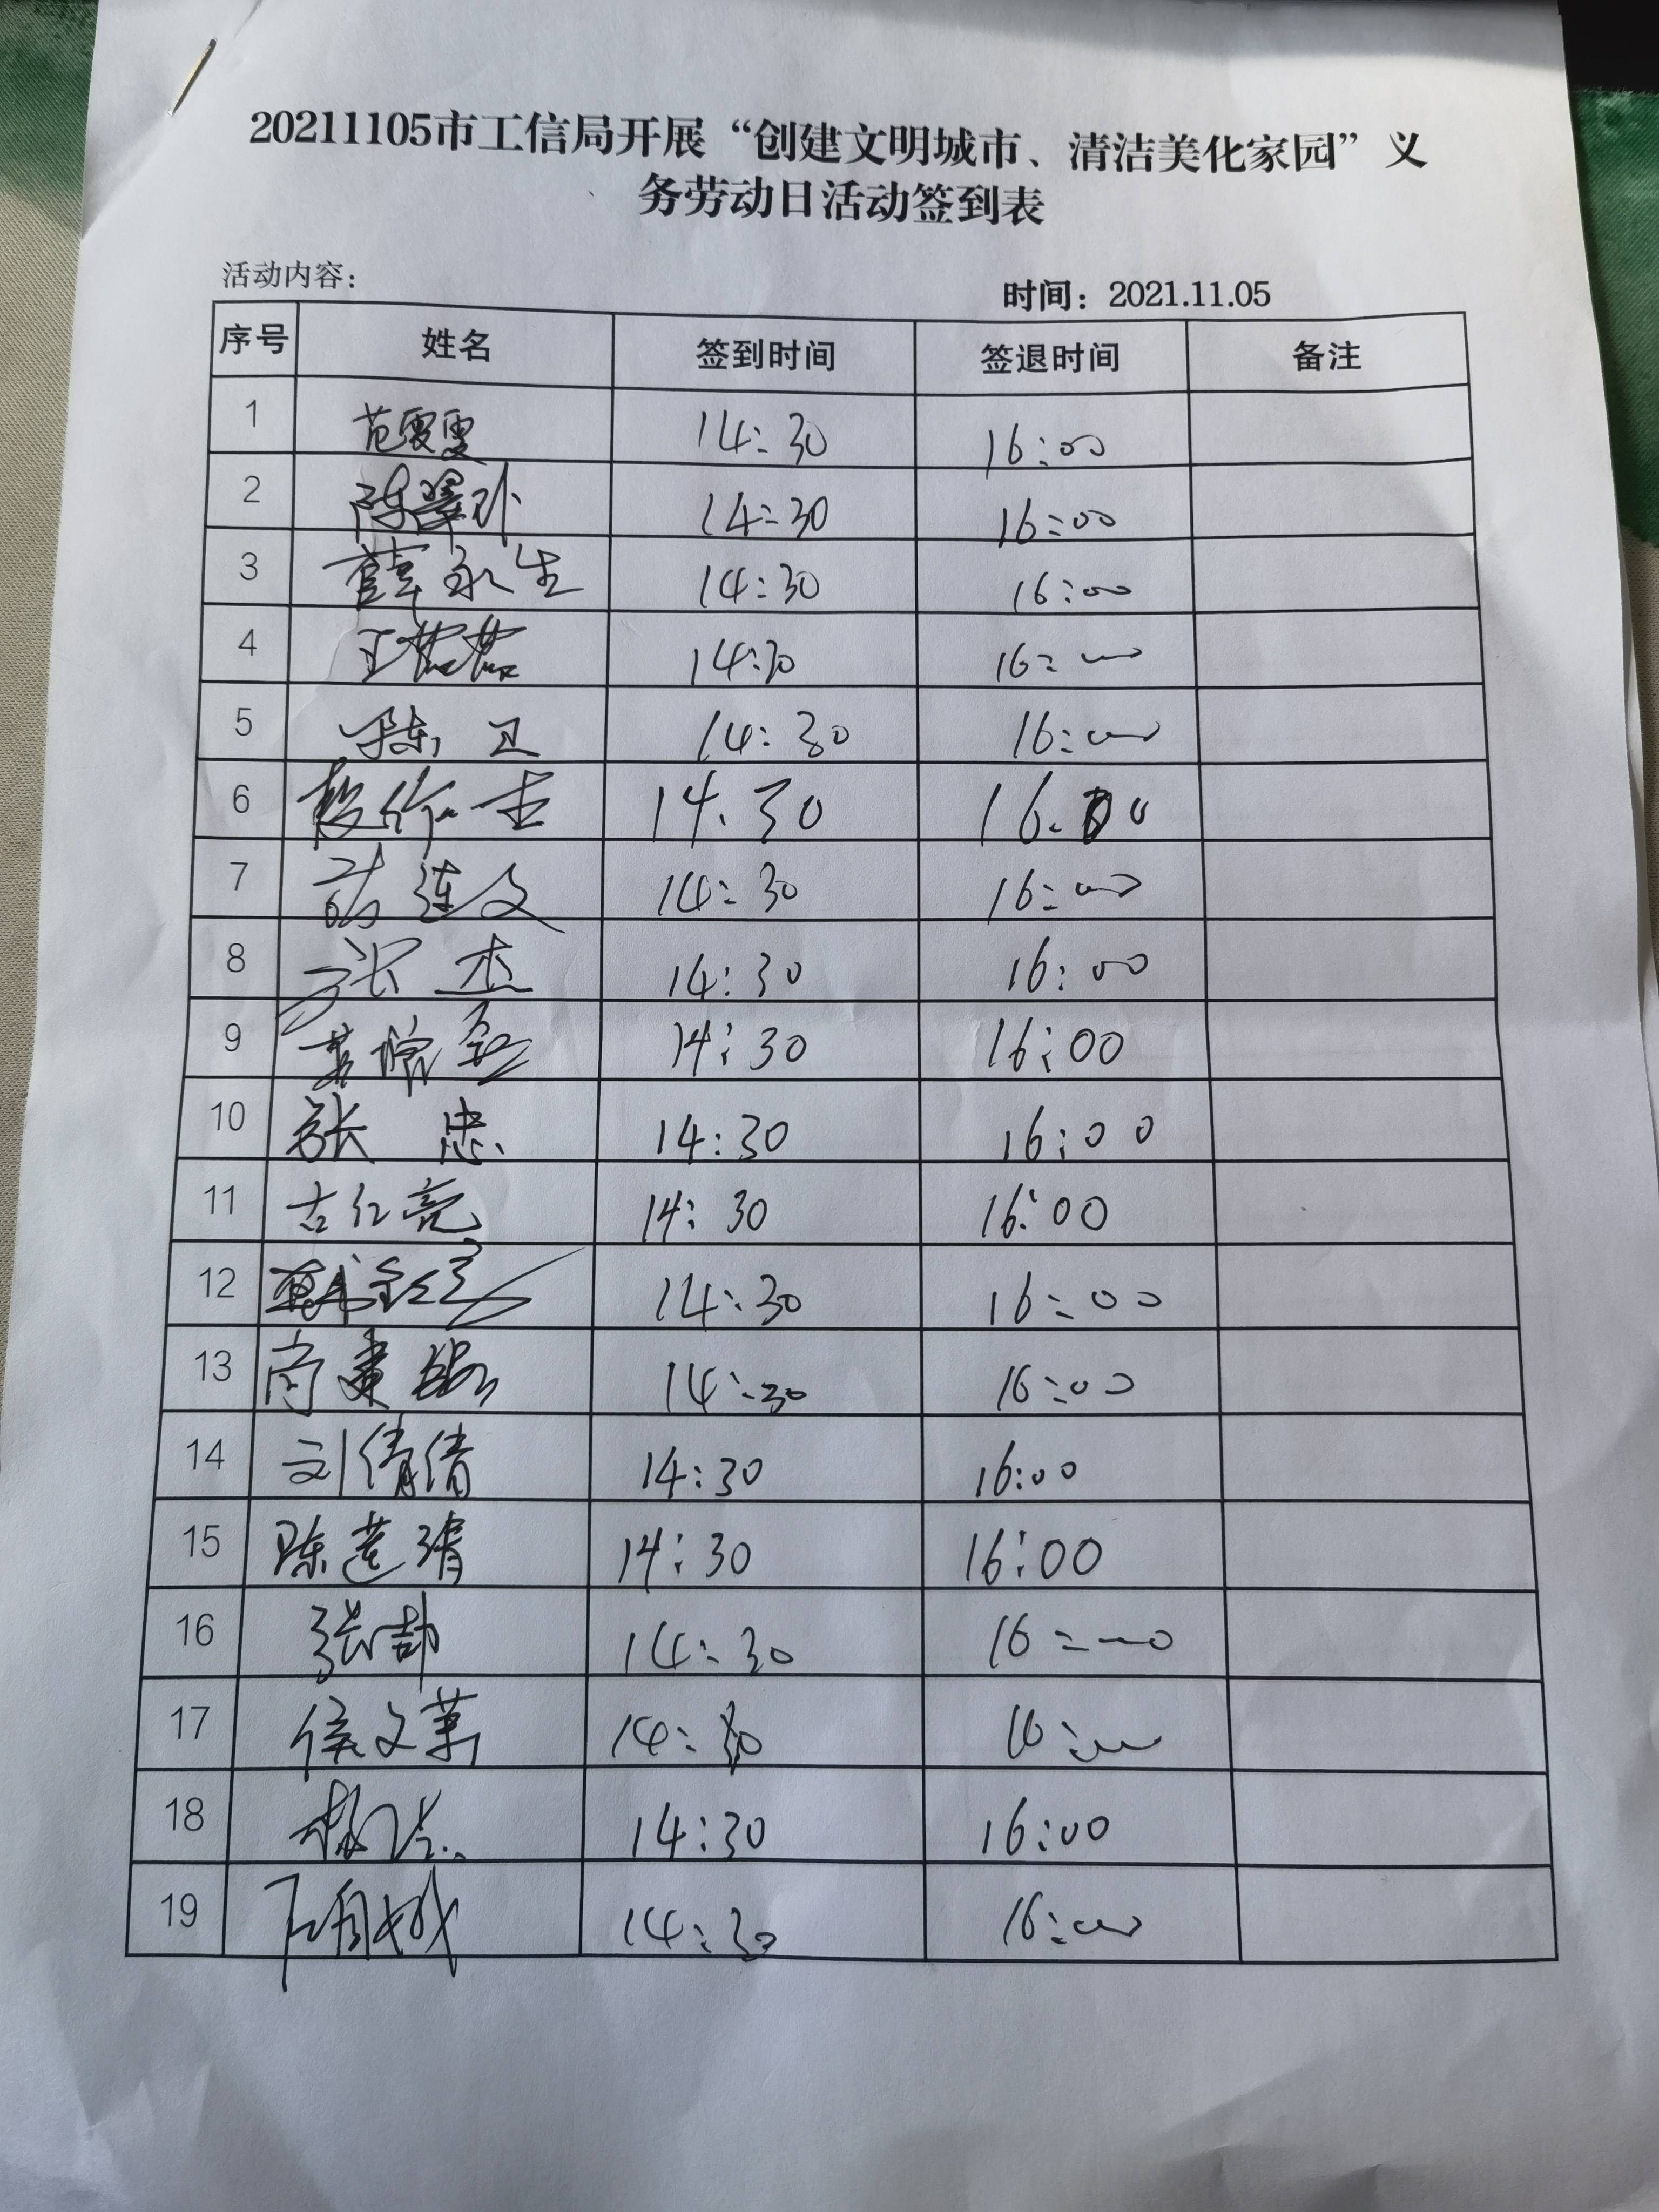 20211105市工信局开展“创建文明城市、清洁美化家园”义
务劳动日活动签到表
活动内容：
时间：2021.11.05
序号 姓名 签到时间 签退时间 备注
1 范雯雯 14:30 16:00
2 陈 14:30 16:00
3 薛永生 14:30 16:00
4 王 14:30 16:00
5 陈卫 14:30 16:00
6 14.30 16.00
7 连文 14:30 16:00
8 张杰 14:30 16:00
9 14:30 16:00
10 张忠 14:30 16:00
11 古红亮 14:30 16:00
12 14:30 16:00
13 尚建 14:30 16:00
14 刘倩倩 14:30 16:00
15 陈莲清 14:30 16:00
16 张喆 14:30 16:00
17 侯文革 14:30 16:00
18 14:30 16:00
19 14:30 16:00